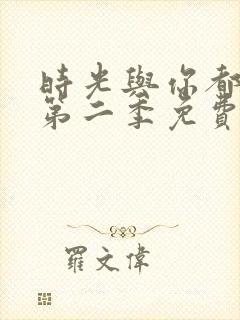 時光與你都
第二季免費
羅文偉